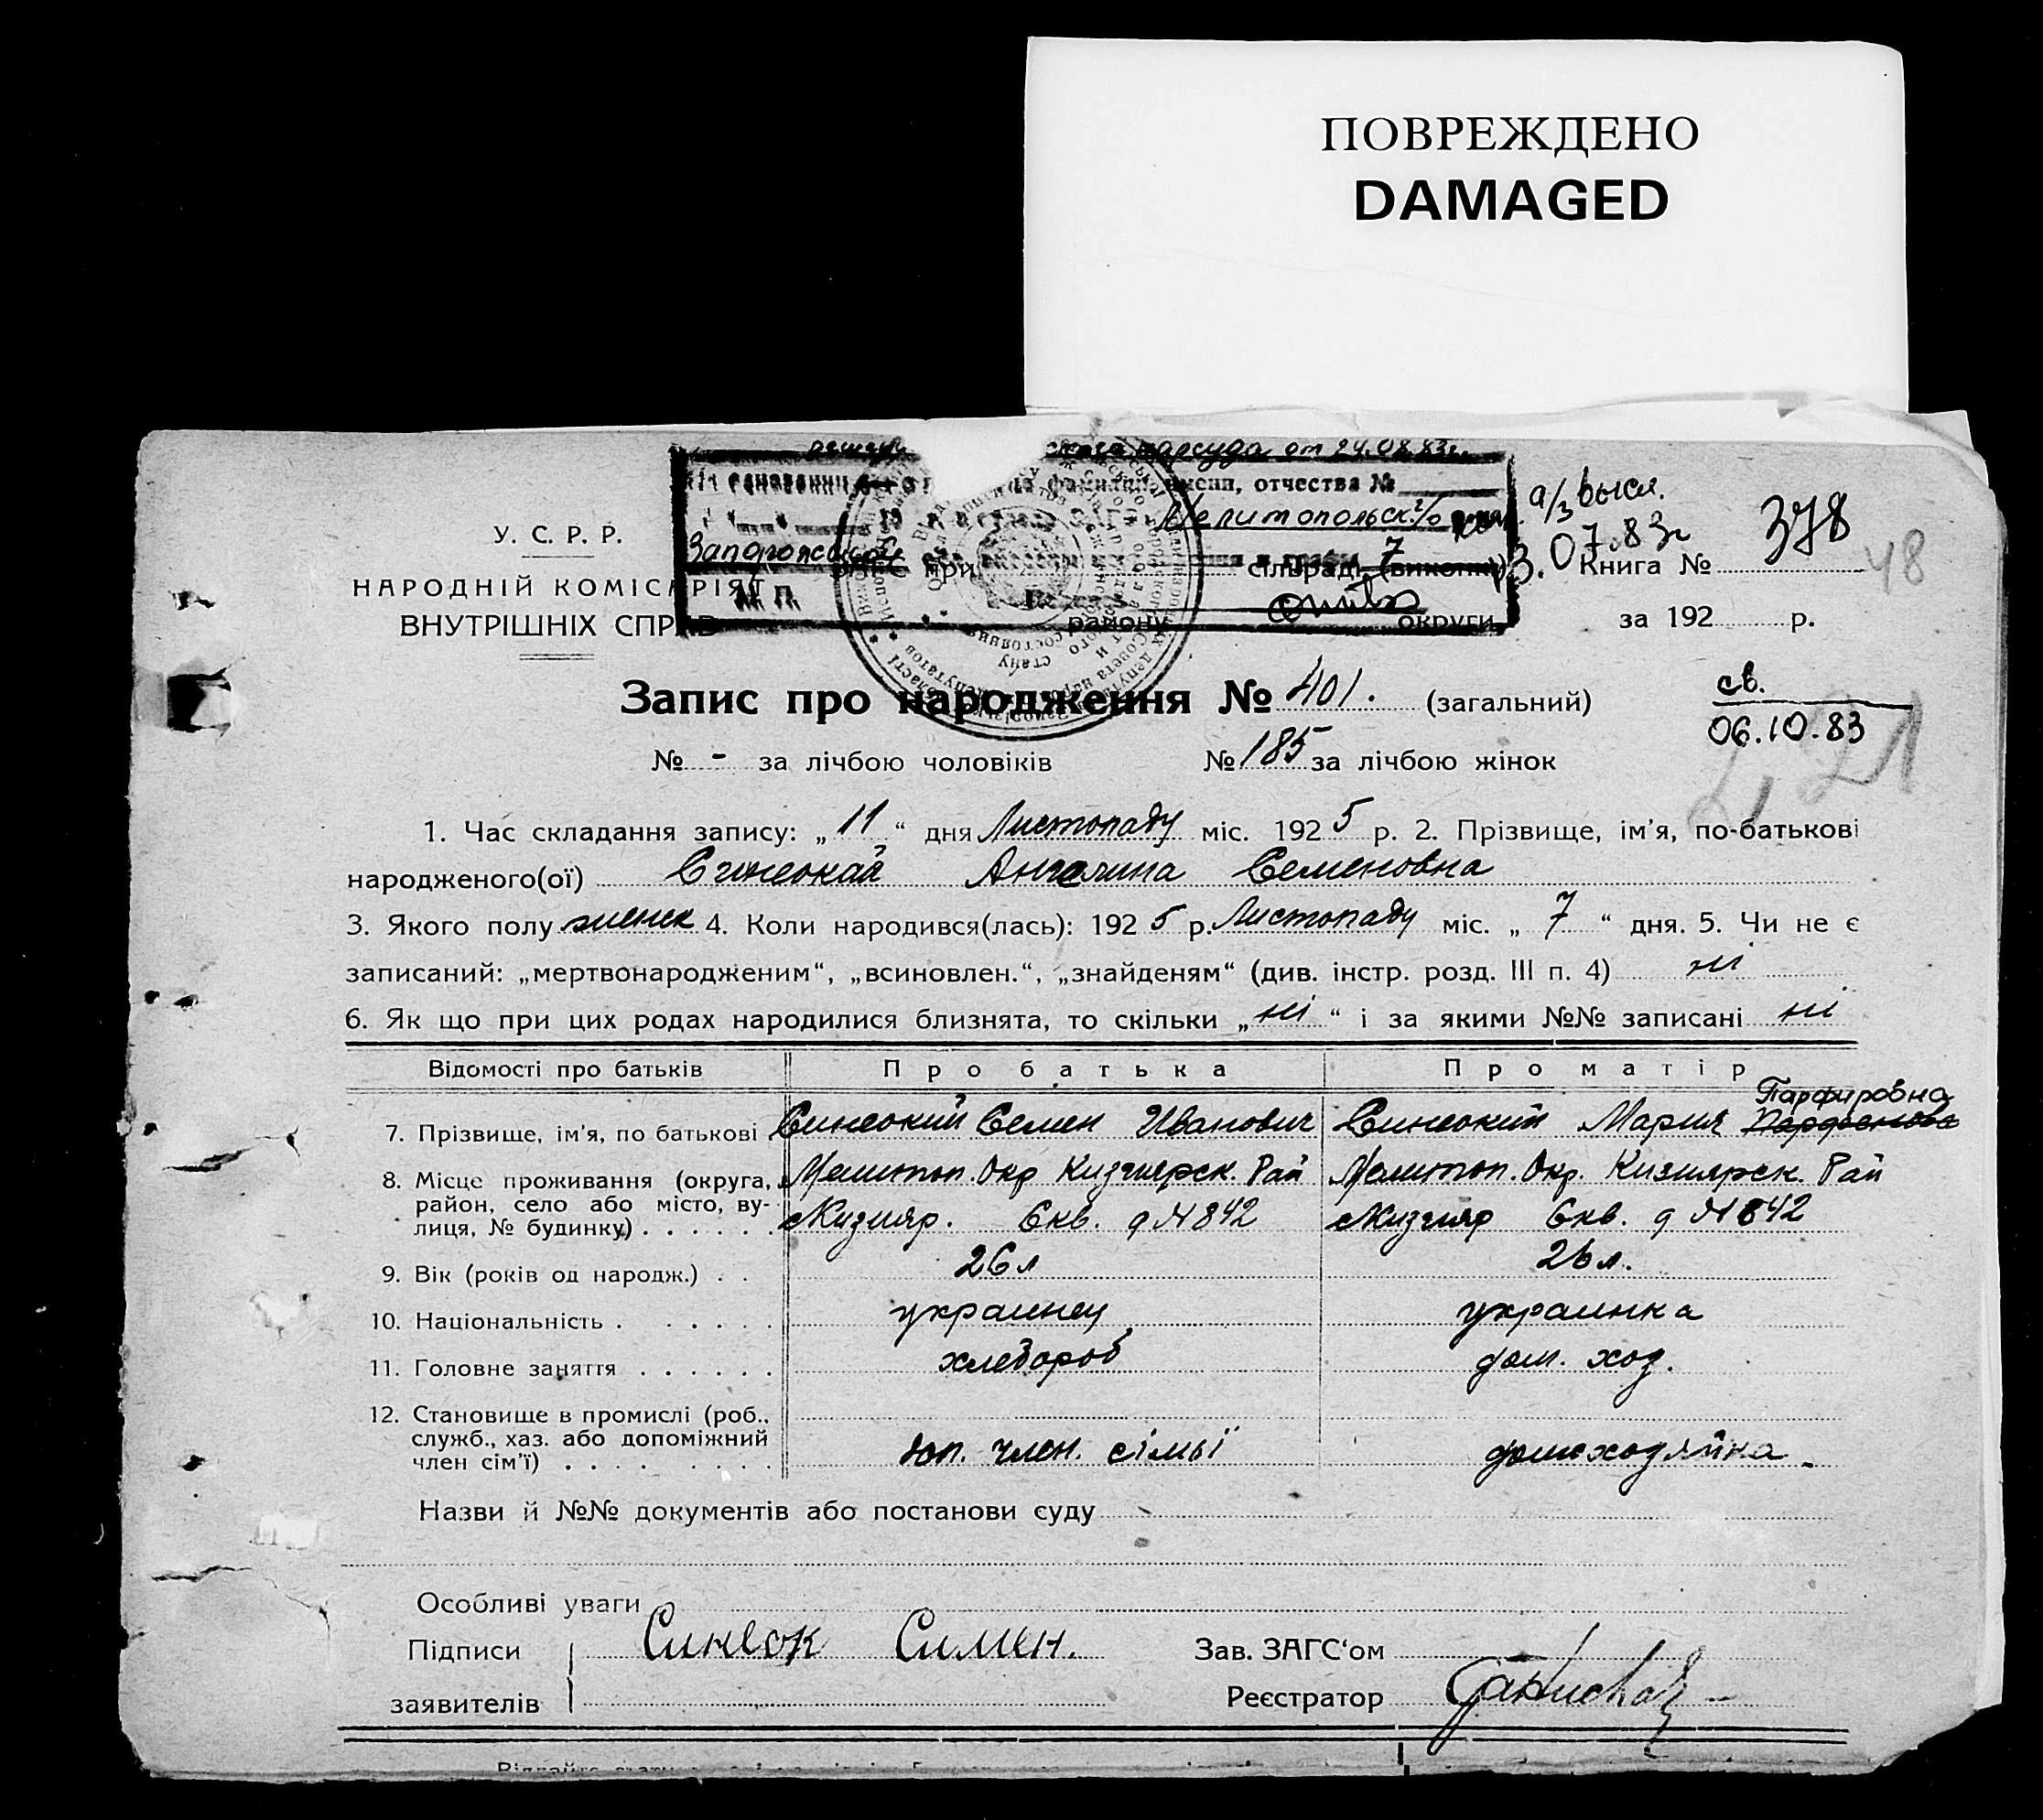 ПОВРЕЖДЕНО
DAMAGED
нарсуда от 24.08.83г.
фамилии, имени, отчества №
Мелитопольск. г/о
Запорожской
а/з высл.
07.83г
378
48
У. С. Р. Р.
НАРОДНІЙ КОМІСАРІЯТ
ВНУТРІШНІХ СПРАВ
при сільраді (виконк.)
району округи
Книга №
за 192 р.
Запис про народження № 401. (загальний)
св.
06.10.83
21
№ - за лічбою чоловіків № 185 за лічбою жінок
1. Час складання запису: „11“ дня Листопаду міс. 1925 р. 2. Прізвище, ім'я, по-батькові
народженого(ої) Синеокая Ангелина Семеновна
3. Якого полу женск 4. Коли народився(лась): 1925 р. Листопаду міс. „7“ дня. 5. Чи не є
записаний: „мертвонародженим“, „всиновлен.“, „знайденям“ (див. інстр. розд. III п. 4) ні
6. Як що при цих родах народилися близнята, то скільки „ні“ і за якими №№ записані ні
Відомості про батьків Про батька Про матір
Парфировна
7. Прізвище, ім'я, по батькові Синеокий Семен Иванович Синеокий Мария
8. Місце проживання (округа, Мелитоп. Окр Кизиярск. Рай Мелитоп. Окр. Кизиярск. Рай
район, село або місто, ву-
лиця, № будинку) . . . . . . с Кизияр. 6кв. д № 842 с Кизияр 6кв. д № 842
9. Вік (років од народж.) . . 26 л 26 л.
10. Національність . . . . . . украинец украинка
11. Головне заняття . . . . . . хлебороб дом. хоз.
12. Становище в промислі (роб.,
служб., хаз. або допоміжний
член сім'ї) . . . . . . . . доп. член. сімьї домхозяйка.
Назви й №№ документів або постанови суду
Особливі уваги
Підписи Синеок Симен. Зав. ЗАГС'ом
заявителів Реєстратор